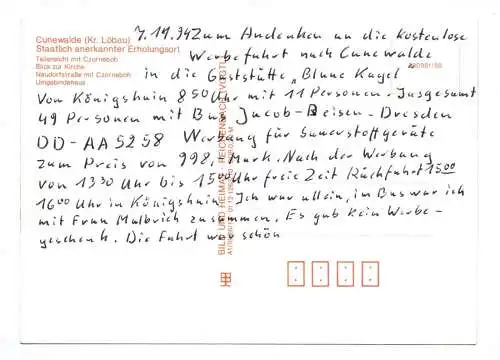 Cunewalde (Kr. Löbau)
Staatlich anerkannter Erholungsort
Teilansicht mit Czorneboh
Blick zur Kirche
Neudorfstraße mit Czorneboh
Umgebindehaus
7.11.94 Zum Andenken an die kostenlose
Werbefahrt nach Cunewalde
in die Gaststätte „Blaue Kugel
Von Königshain 8 50 Uhr mit 11 Personen. Insgesamt
49 Personen mit Bus Jacob-Reisen-Dresden
DD-AA 5258 Werbung für Sauerstoffgeräte
zum Preis von 998,- Mark. Nach der Werbung
von 13 30 Uhr bis 15 00 Uhr freie Zeit Rückfahrt 15 00
16 00 Uhr in Königshain. Ich war allein, im Bus war ich
mit Frau zusammen. Es gab kein Werbe-
geschenk. Die Fahrt war schön
BILD UND HEIMAT REICHENBACH (VOGTL)